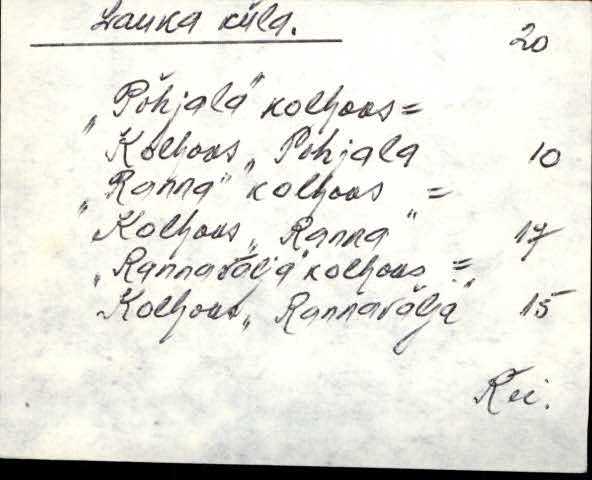 Lauka küla. 20
„Põhjala" kolhoos =
Kolhoos „Põhjala 10
„Ranna" kolhoos =
Kolhoos „Ranna" 17
„Rannavälja" kolhoos =
Kolhoos „Rannavälja" 15
Rei.